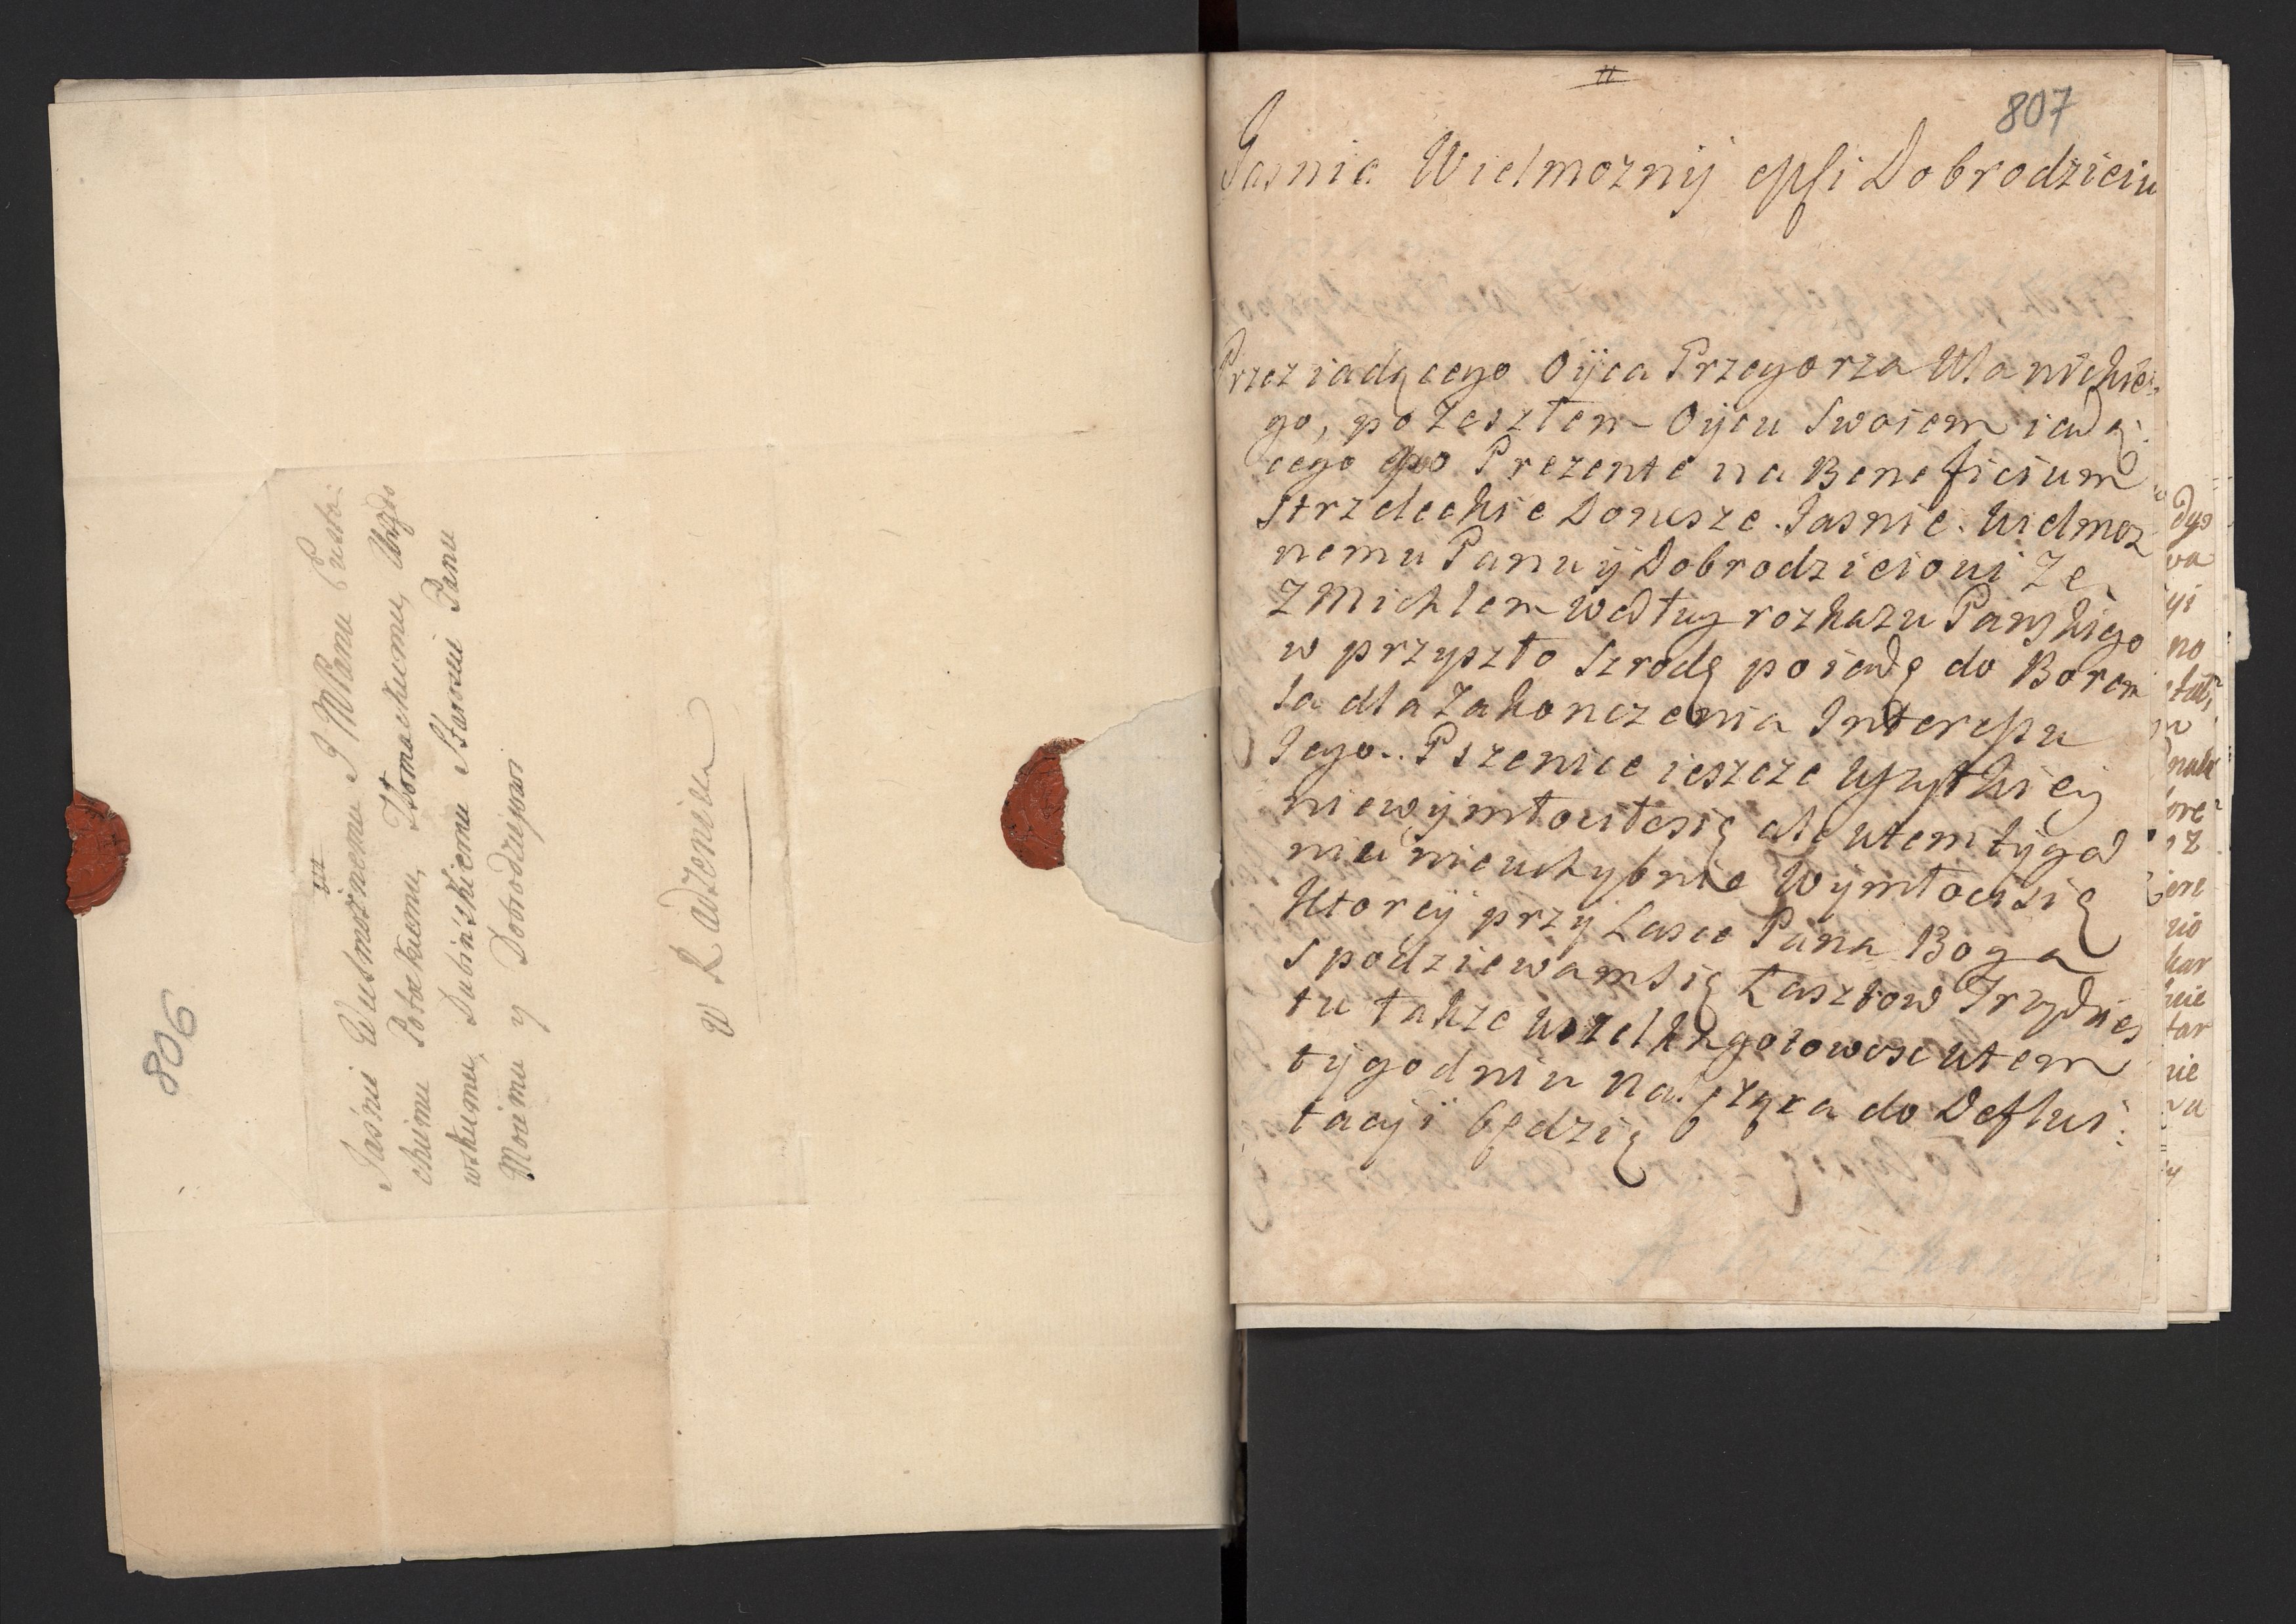 806
Jaśnie Wielmożnemu J MPanu Eusta:
chiemu Potockiemu, Tłomackiemu, Urzędo
wskiemu, Dubinskiemu Staroscie Panu
Moiemu y Dobrodzieiowi
w Radzeniu
807
Jasnie Wielmoznij Dobrodzieiu
Przez iadącego Oÿca Przegorza
go, po Zeszłem Oÿcu Swoiem iadą:
cego po Prezente na Beneficium
Strzeleckie Donusze Jasnie Wielmoz
nemu Panu ÿ Dobrodzieioui Ze
Z Michlem według rozkazu Panskiego
w przyszło Szrodę poiadę do Borem
la dla Zakonczenia Interessu
Jego.. Pszenice ieszcze wszytkiei
niewÿmłouiłosię ale utem tÿgod
niu nieuchybnie Wÿmłoci się
Ktoreÿ przÿ Lasce Pana Boga
spodziewam się Łasztow Trzydzies
tu takze wszelka gotowosc utem
tÿgodniu do Deflui:
tacÿi będzię